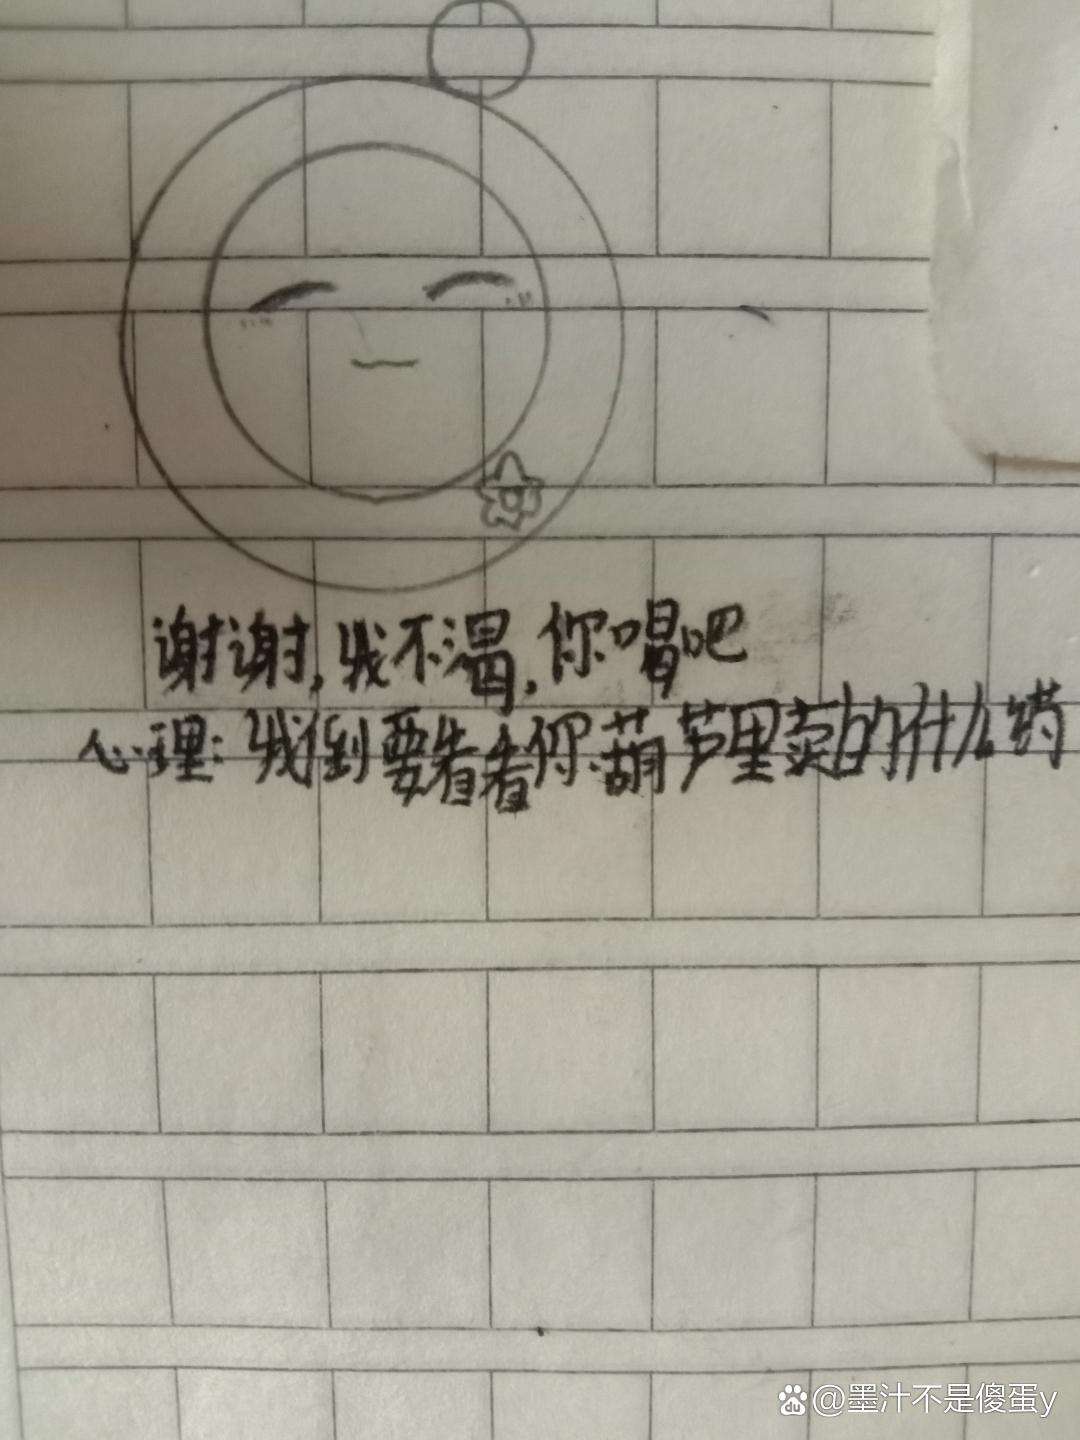 谢谢,我不渴,你唱吧
心理:我倒要看看你葫芦里卖的什么药
@墨汁不是傻蛋y